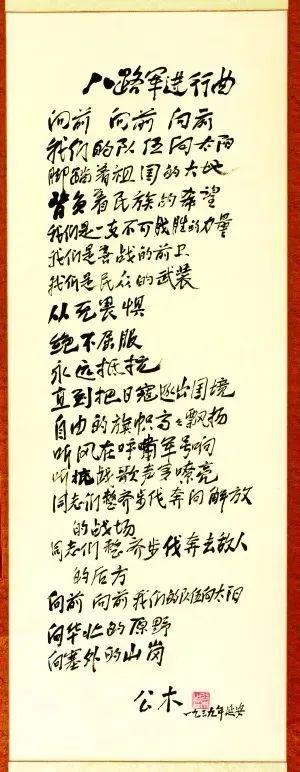 八路军进行曲
向前 向前 向前
我们的队伍向太阳
脚踏着祖国的大地
背负着民族的希望
我们是一支不可战胜的力量
我们是善战的前卫
我们是民众的武装
从无畏惧
绝不屈服
永远抵抗
直到把日寇逐出国境
自由的旗帜高々飘扬
听风在呼啸军号响
听抗战歌声多嘹亮
同志们整齐步伐奔向解放
的战场
同志们整齐步伐奔去敌人
的后方
向前 向前 我们的队伍向太阳
向华北的原野
向塞外的山岗
公木
一九三九年延安